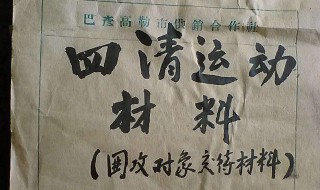 巴彦高勒市供销合作社
四清运动
材料
(围攻对象交待材料)